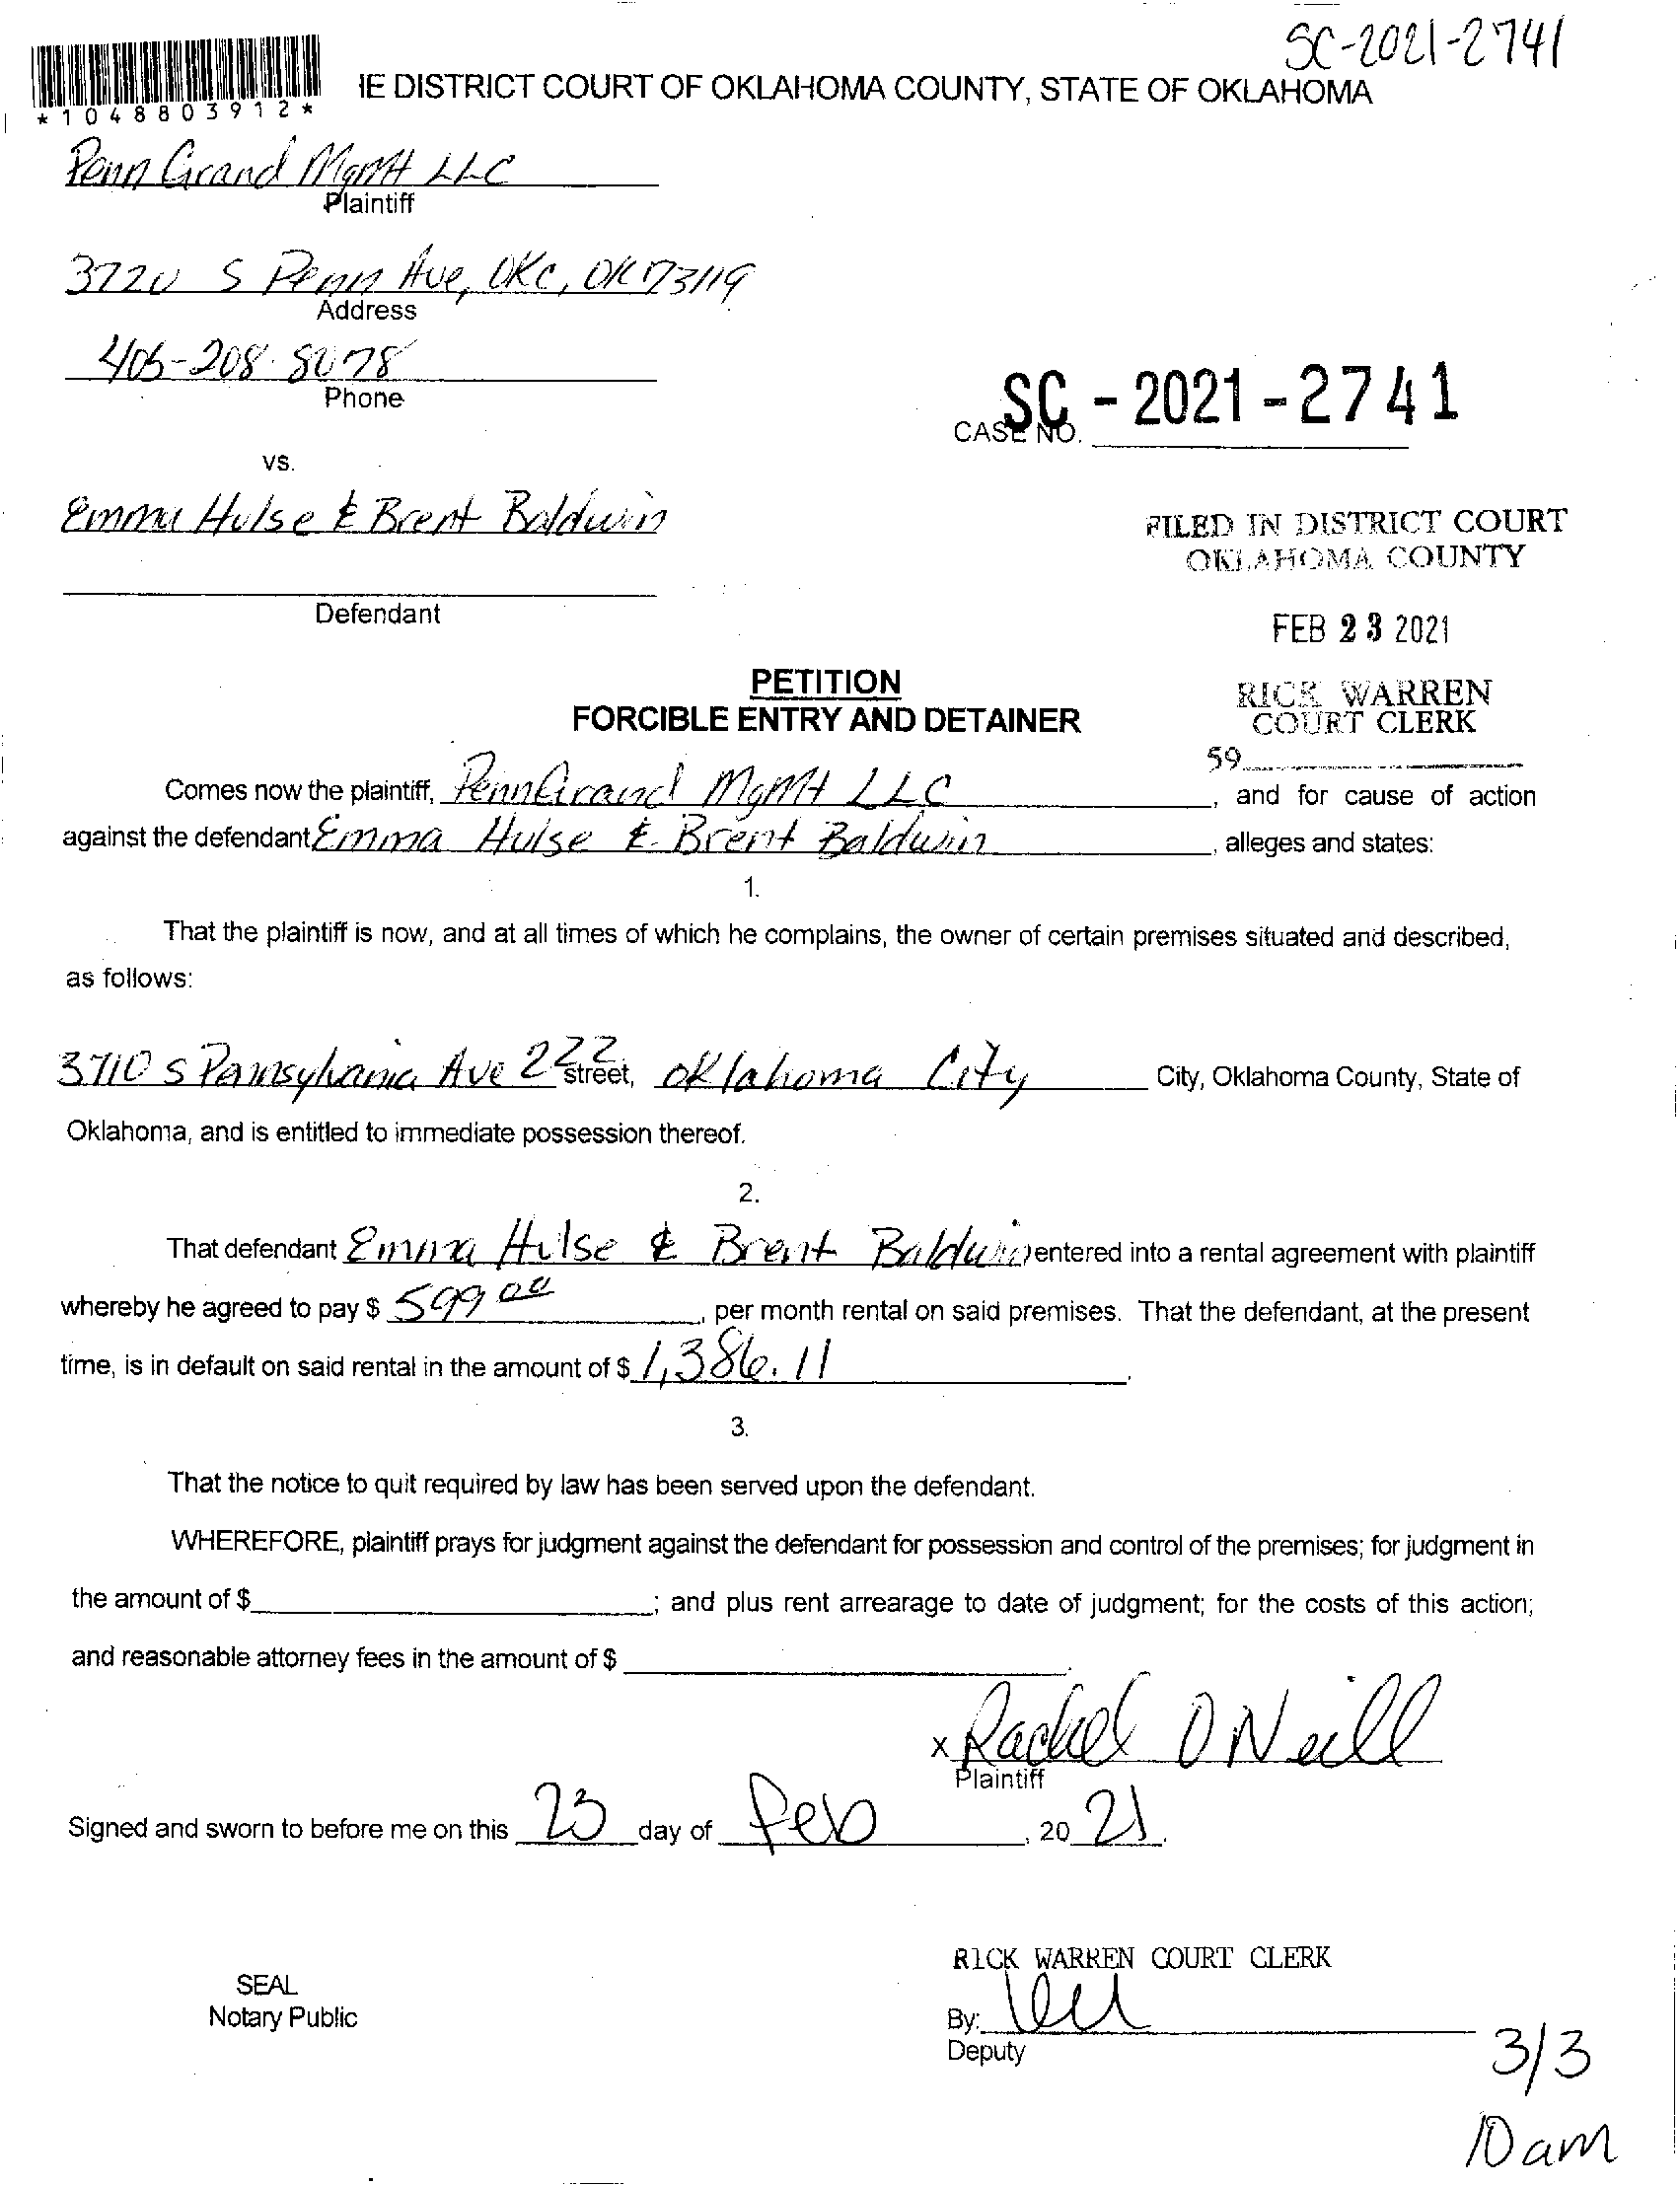 SC-2021-2741
IE DISTRICT COURT OF OKLAHOMA COUNTY, STATE OF OKLAHOMA
*1048803912*
Penn Grand Mgmt LLC
Plaintiff
3720 S Penn Ave, OKC, OK 73119
Address
405-208-8078
Phone
SC - 2021 - 2741
CASE NO.
vs.
Emma Hulse & Brent Baldwin
FILED IN DISTRICT COURT
OKLAHOMA COUNTY
Defendant
FEB 23 2021
PETITION
FORCIBLE ENTRY AND DETAINER
RICK WARREN
COURT CLERK
59
Comes now the plaintiff, Penn Grand Mgmt LLC, and for cause of action
against the defendant Emma Hulse & Brent Baldwin, alleges and states:
1.
That the plaintiff is now, and at all times of which he complains, the owner of certain premises situated and described,
as follows:
3710 S Pannsylvania Ave 222 street, Oklahoma City City, Oklahoma County, State of
Oklahoma, and is entitled to immediate possession thereof.
2.
That defendant Emma Hulse & Brent Baldwin entered into a rental agreement with plaintiff
whereby he agreed to pay $ 599.00, per month rental on said premises. That the defendant, at the present
time, is in default on said rental in the amount of $ 1,386.11.
3.
That the notice to quit required by law has been served upon the defendant.
WHEREFORE, plaintiff prays for judgment against the defendant for possession and control of the premises; for judgment in
the amount of $ ; and plus rent arrearage to date of judgment; for the costs of this action;
and reasonable attorney fees in the amount of $
x Rachel O Neill
Plaintiff
Signed and sworn to before me on this 23 day of Feb, 20 21.
RICK WARREN COURT CLERK
SEAL
Notary Public
By:
Deputy
3/3
10 am